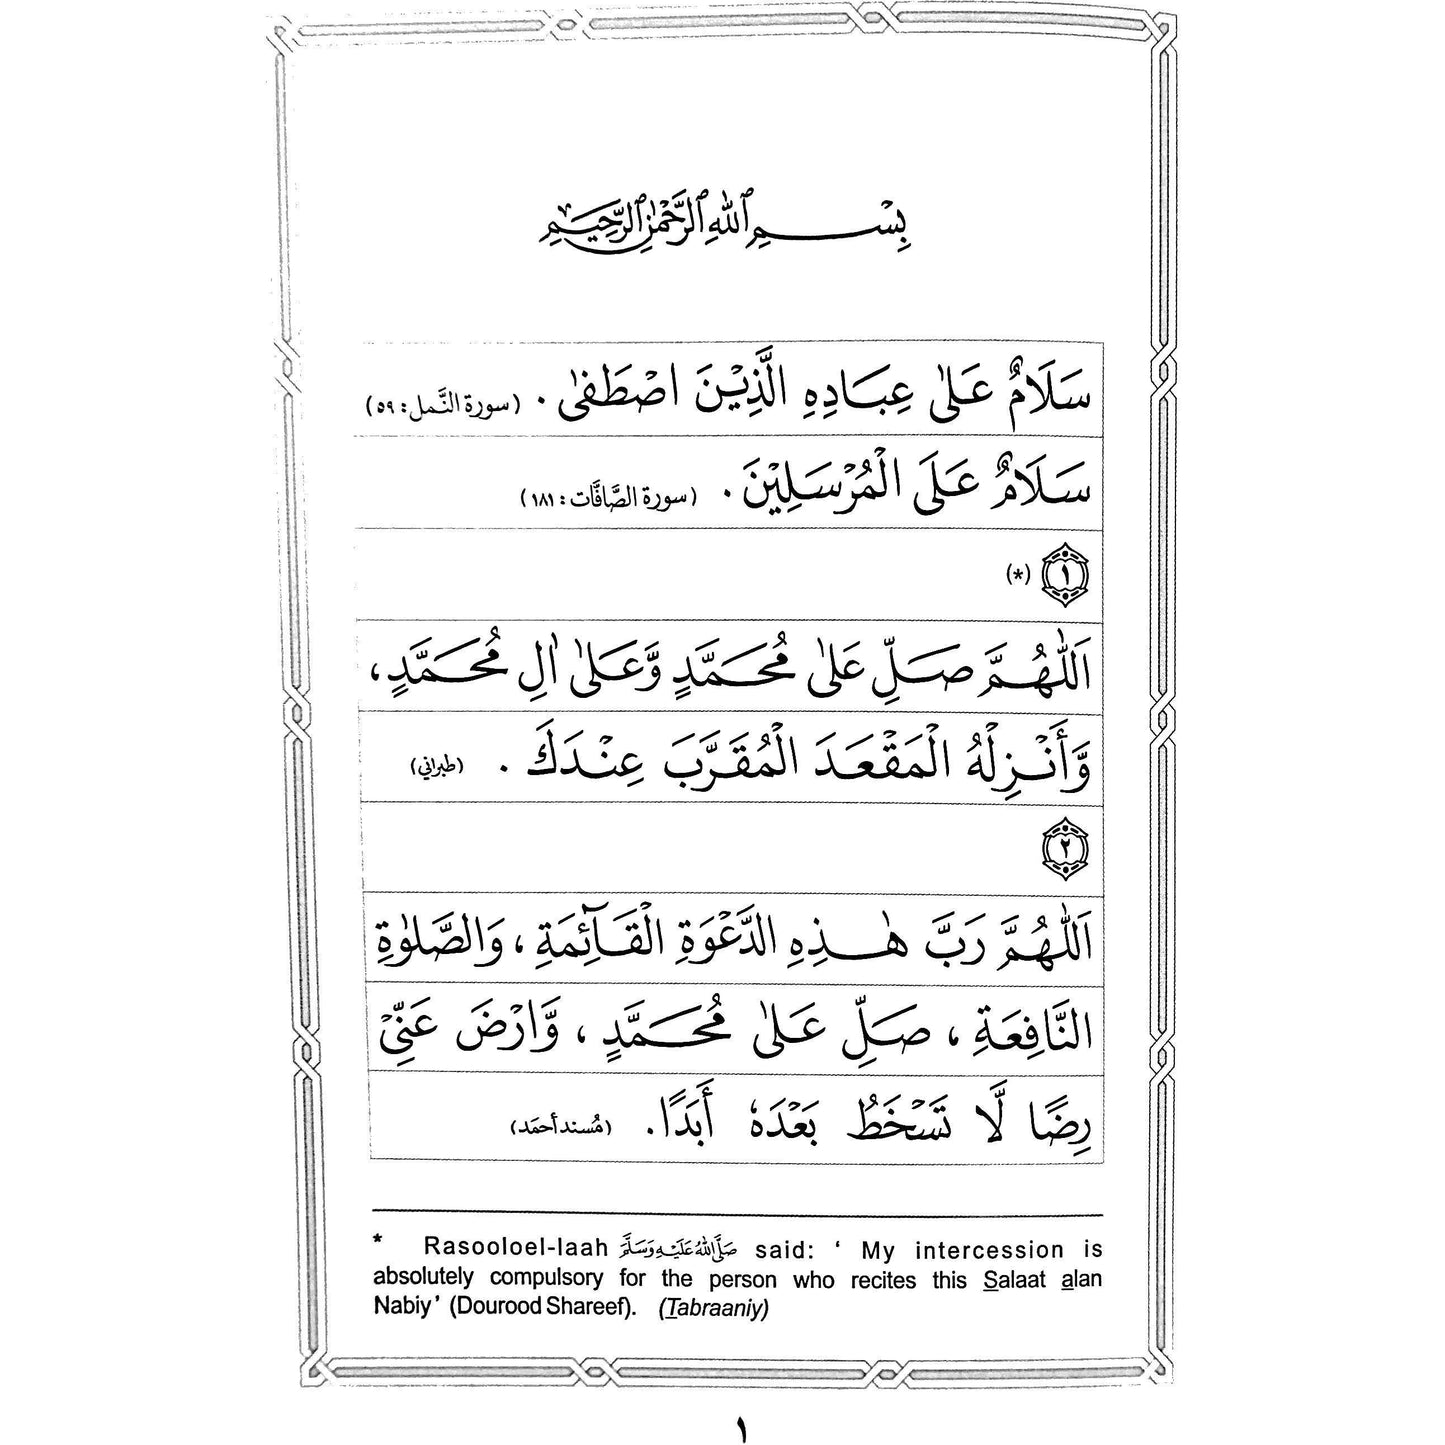 بِسْمِ اللهِ الرَّحْمٰنِ الرَّحِيْمِ
سَلَامٌ عَلٰى عِبَادِهِ الَّذِيْنَ اصْطَفٰى . (سورة النَّمل: ٥٩)
سَلَامٌ عَلَى الْمُرْسَلِيْنَ . (سورة الصَّافَّات: ١٨١)
١ (*)
اَللّٰهُمَّ صَلِّ عَلٰى مُحَمَّدٍ وَّعَلٰى اٰلِ مُحَمَّدٍ ،
وَّأَنْزِلْهُ الْمَقْعَدَ الْمُقَرَّبَ عِنْدَكَ . (طبراني)
٢
اَللّٰهُمَّ رَبَّ هٰذِهِ الدَّعْوَةِ الْقَآئِمَةِ ، وَالصَّلٰوةِ
النَّافِعَةِ ، صَلِّ عَلٰى مُحَمَّدٍ ، وَّارْضَ عَنِّيْ
رِضًا لَّا تَسْخَطُ بَعْدَهٗ أَبَدًا . (مُسند أحمَد)
* Rasooloel-laah صَلَّى اللهُ عَلَيْهِ وَسَلَّمَ said: ‘ My intercession is
absolutely compulsory for the person who recites this Salaat alan
Nabiy’ (Dourood Shareef). (Tabraaniy)
١